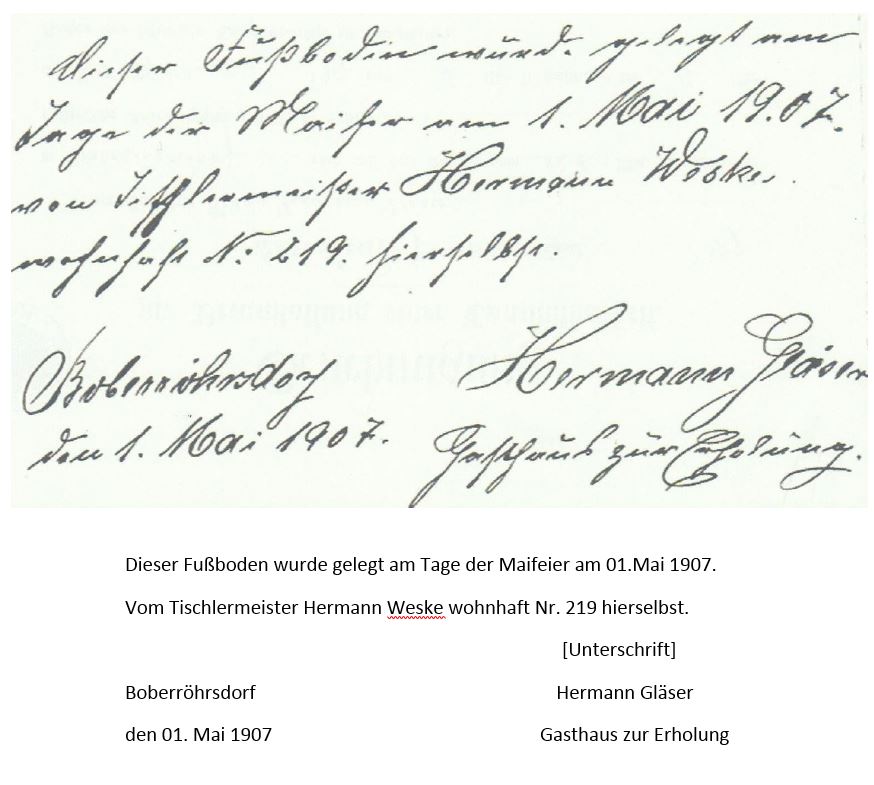 Dieser Fußboden wurde gelegt am
Tage der Maifeier am 1. Mai 1907.
von Tischlermeister Hermann Weske.
wohnhaft N: 219. hierselbst.
Boberröhrsdorf
Hermann Gläser
den 1. Mai 1907.
Gasthaus zur Erholung.
Dieser Fußboden wurde gelegt am Tage der Maifeier am 01.Mai 1907.
Vom Tischlermeister Hermann Weske wohnhaft Nr. 219 hierselbst.
[Unterschrift]
Boberröhrsdorf Hermann Gläser
den 01. Mai 1907 Gasthaus zur Erholung